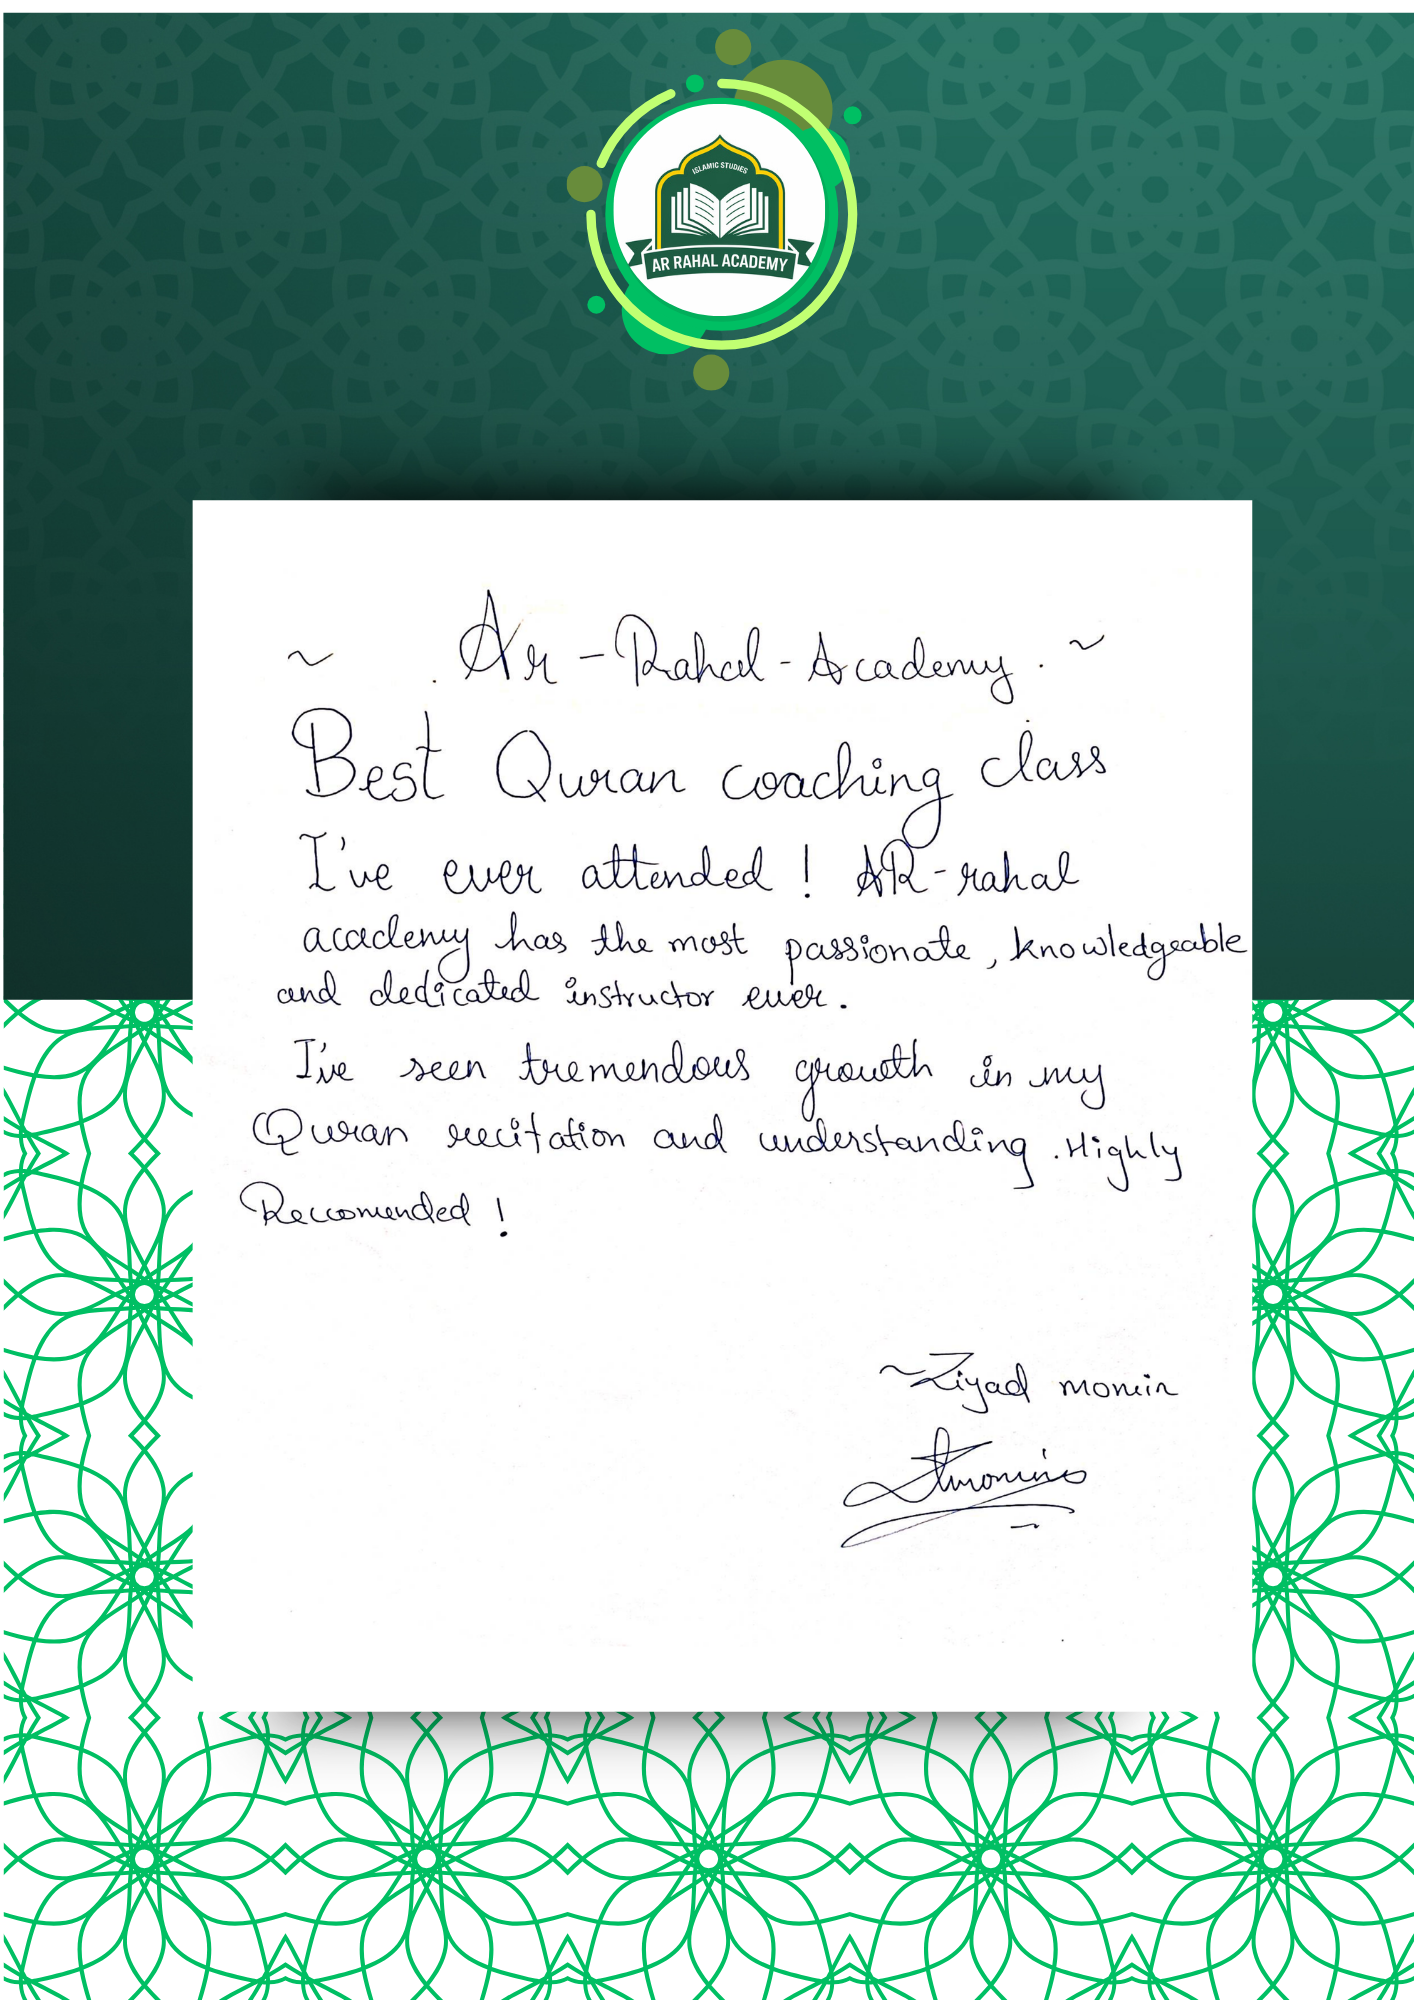 ISLAMIC STUDIES
AR RAHAL ACADEMY
~ . Ar-Rahal-Academy. ~
Best Quran coaching class
I've ever attended! AR-rahal
academy has the most passionate, knowledgeable
and dedicated instructor ever.
I've seen tremendous growth in my
Quran recitation and understanding. Highly
Reccomended!
~Ziyad momin